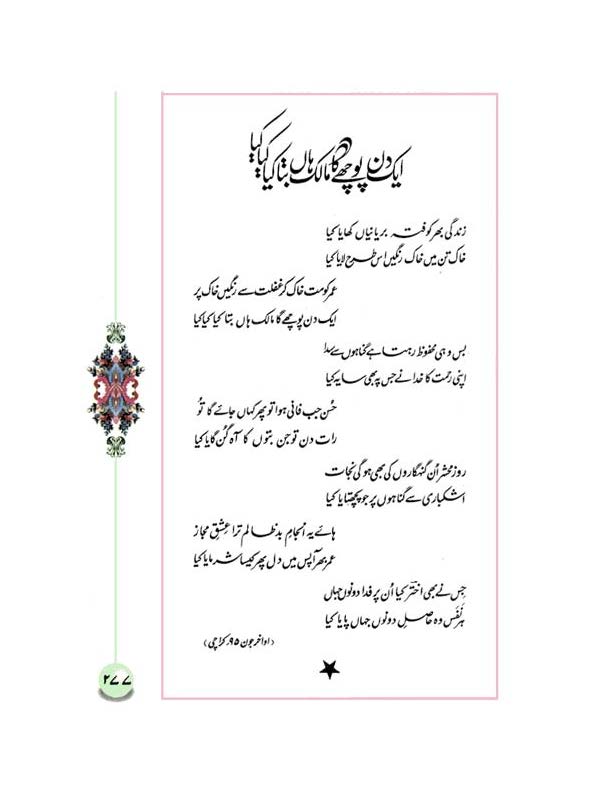 ایک دن پوچھے گا مالک ہاں بتا کیا کیا کیا
زندگی بھر کوفتہ بریانیاں کھایا کیا
خاک تن میں خاک رنگیں اس طرح لایا کیا
عمر کو مت خاک کر غفلت سے رنگیں خاک پر
ایک دن پوچھے گا مالک ہاں بتا کیا کیا کیا
بس وہی محفوظ رہتا ہے گناہوں سے سدا
اپنی رحمت کا خدا نے جس پہ بھی سایہ کیا
حُسن جب فانی ہوا تو پھر کہاں جائے گا تُو
رات دن تو جن بتوں کا آہ گُن گایا کیا
روز محشر اُن گنہگاروں کی بھی ہوگی نجات
اشکباری سے گناہوں پر جو پچھتایا کیا
ہائے یہ انجامِ بد ظالم ترا عِشقِ مجاز
عمر بھر آپس میں دل پھر کیسا شرمایا کیا
جس نے بھی اخترؔ کیا اُن پر فدا دونوں جہاں
ہر نَفَس وہ حاصلِ دونوں جہاں پایا کیا
(اواخر جون ۹۵ کراچی)
۲۷۷